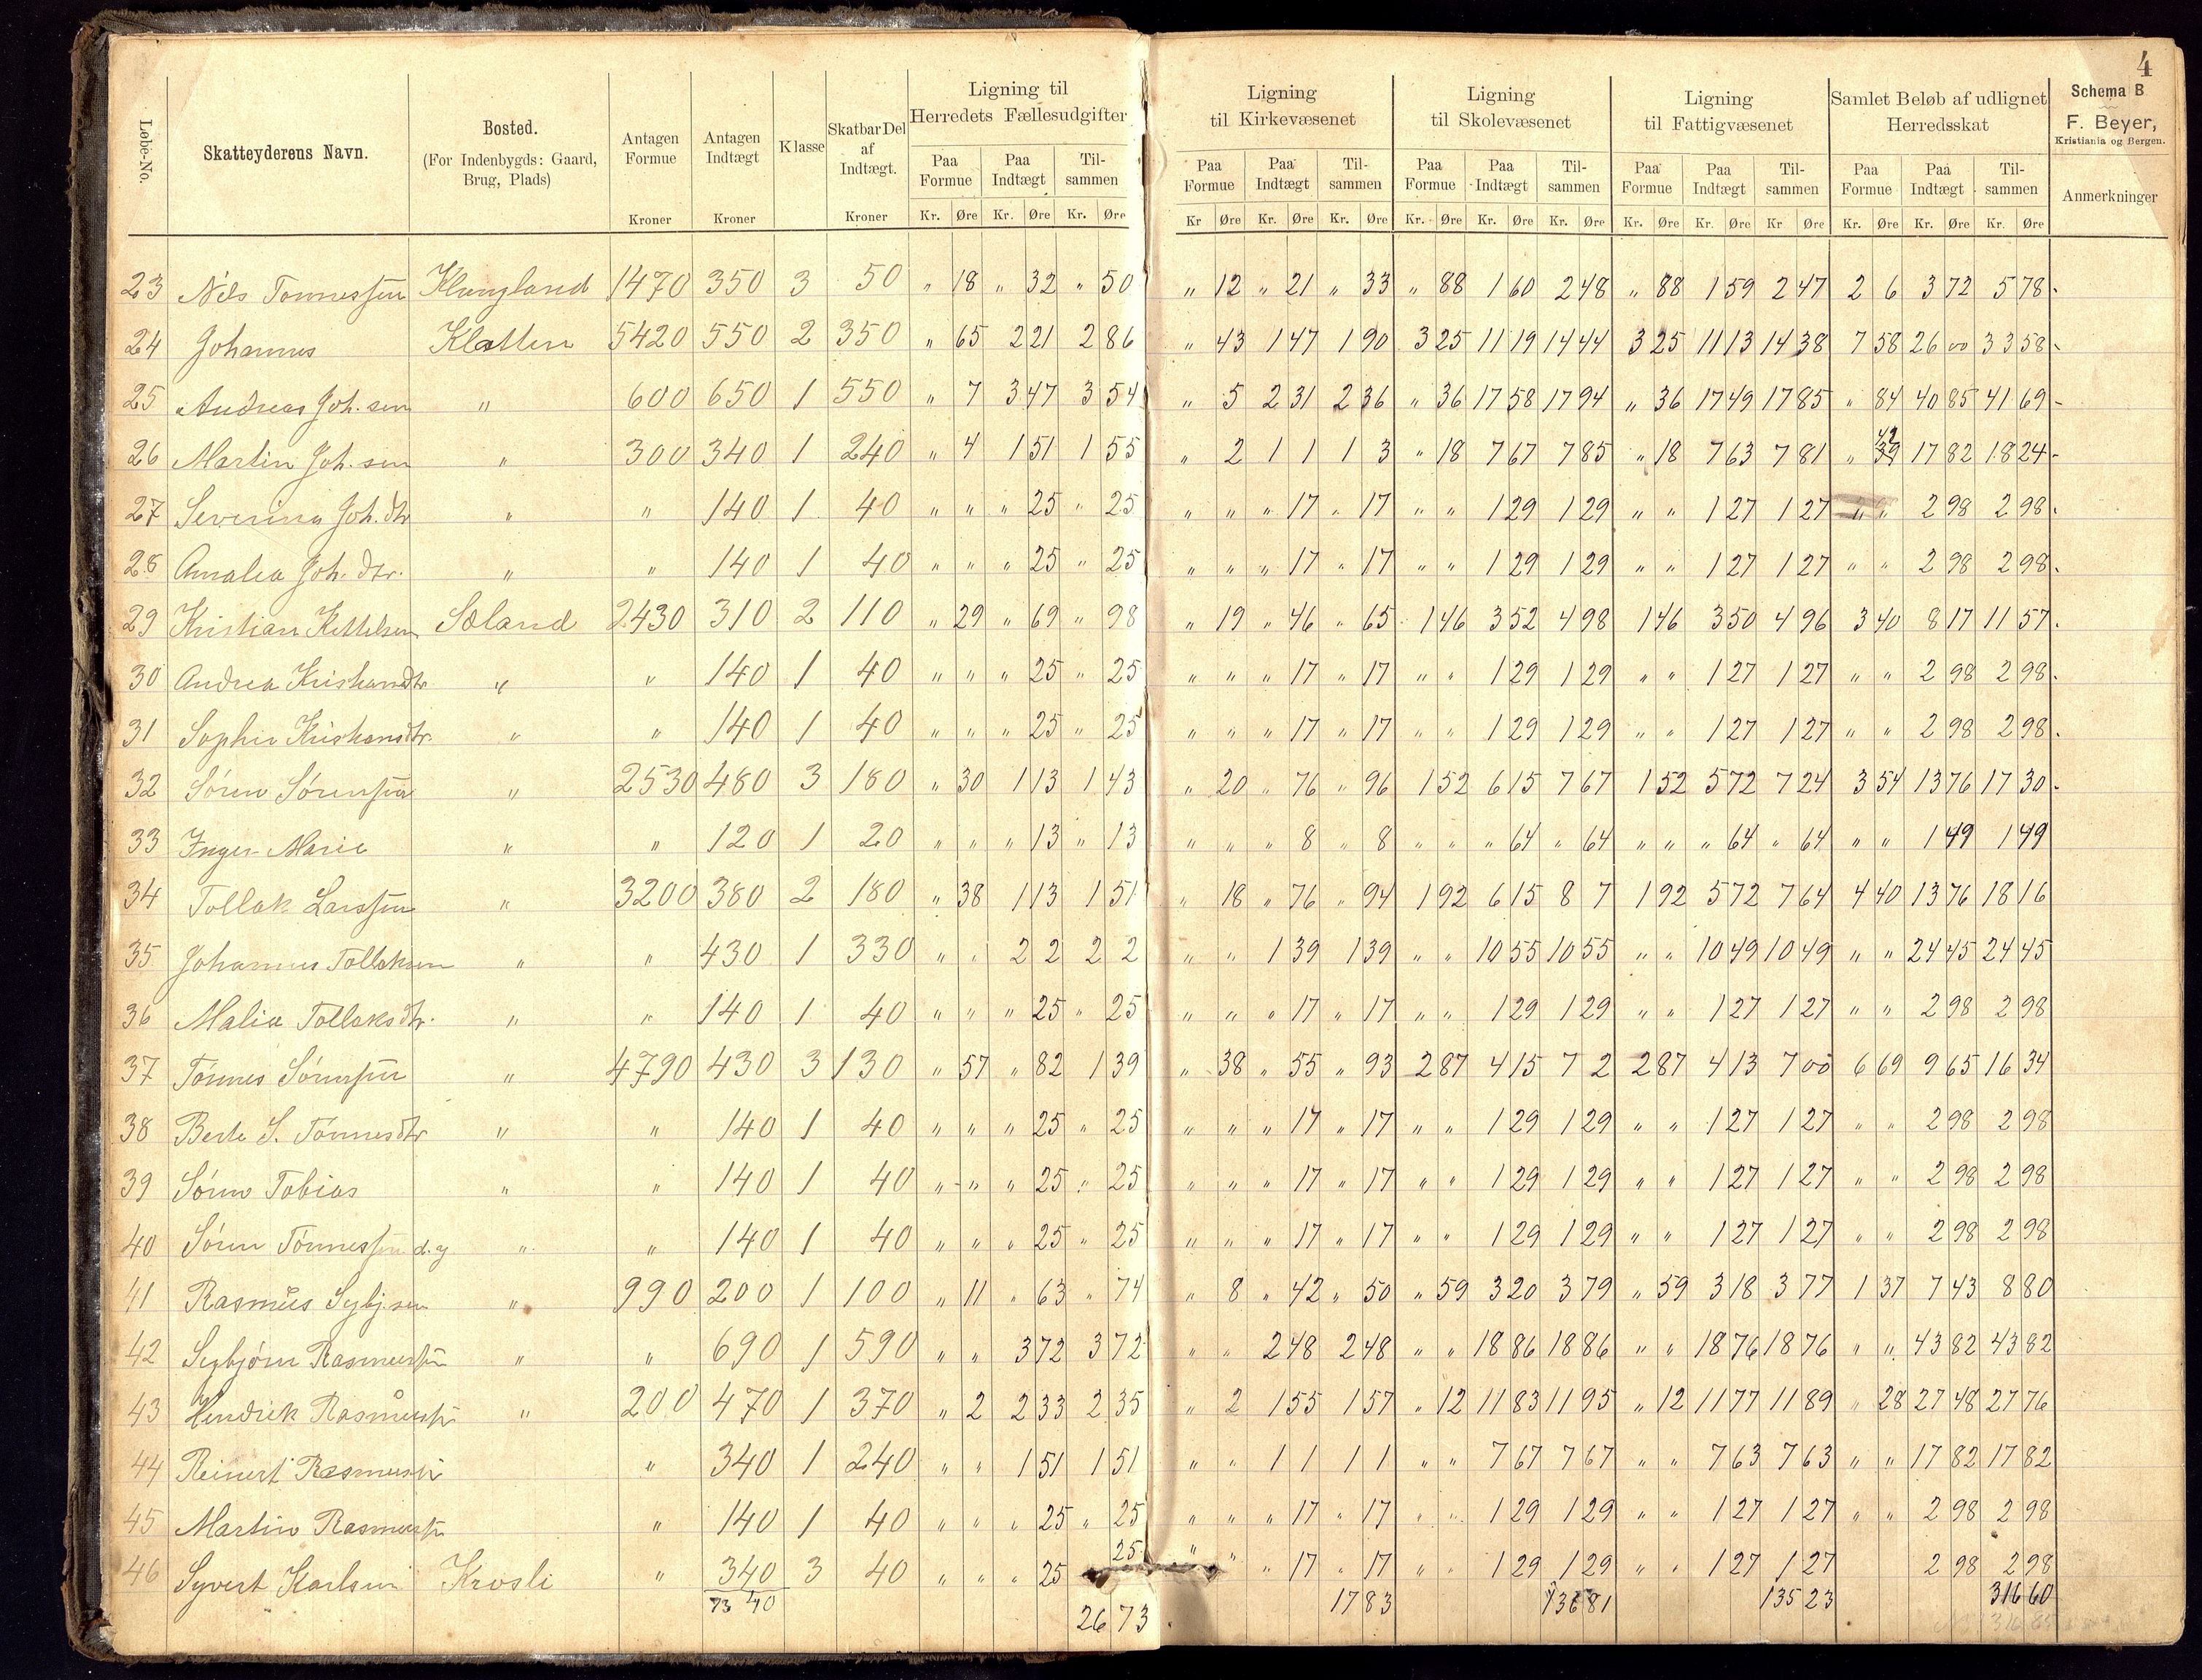 4
Løbe-No. Skatteyderens Navn. Bosted. (For Indenbygds: Gaard, Brug, Plads) Antagen Formue Kroner Antagen Indtægt Kroner Klasse Skatbar Del af Indtægt. Kroner Ligning til Herredets Fællesudgifter Ligning til Kirkevæsenet Ligning til Skolevæsenet Ligning til Fattigvæsenet Samlet Beløb af udlignet Herredsskat Schema B F. Beyer, Kristiania og Bergen. Anmerkninger
Paa Formue Paa Indtægt Til-sammen Paa Formue Paa Indtægt Til-sammen Paa Formue Paa Indtægt Til-sammen Paa Formue Paa Indtægt Til-sammen Paa Formue Paa Indtægt Til-sammen
Kr. Øre Kr. Øre Kr. Øre Kr Øre Kr. Øre Kr. Øre Kr. Øre Kr. Øre Kr. Øre Kr. Øre Kr. Øre Kr Øre Kr. Øre Kr. Øre Kr. Øre
23 Nils Tønnessen Klungland 1470 350 3 50 " 18 " 32 " 50 " 12 " 21 " 33 " 88 1 60 2 48 " 88 1 59 2 47 2 6 3 72 5 78.
24 Johannes Kletten 5420 550 2 350 " 65 2 21 2 86 " 43 1 47 1 90 3 25 11 19 14 44 3 25 11 13 14 38 7 58 26 00 33 58
25 Andreas Joh. sen " 600 650 1 550 " 7 3 47 3 54 " 5 2 31 2 36 " 36 17 58 17 94 " 36 17 49 17 85 " 84 40 85 41 69
26 Martin Joh. sen " 300 340 1 240 " 4 1 51 1 55 " 2 1 1 1 3 " 18 7 67 7 85 " 18 7 63 7 81 " 42 17 82 18 24
27 Severina Joh. dtr " " 140 1 40 " " " 25 " 25 " " " 17 " 17 " " 1 29 1 29 " " 1 27 1 27 " " 2 98 2 98.
28 Amalia Joh. dtr. " " 140 1 40 " " " 25 " 25 " " " 17 " 17 " " 1 29 1 29 " " 1 27 1 27 " " 2 98 2 98.
29 Kristian Kettelsen Sæland 2430 310 2 110 " 29 " 69 " 98 " 19 " 46 " 65 1 46 3 52 4 98 1 46 3 50 4 96 3 40 8 17 11 57.
30 Andrea Kristiansdtr " " 140 1 40 " " " 25 " 25 " " " 17 " 17 " " 1 29 1 29 " " 1 27 1 27 " " 2 98 2 98.
31 Sophie Kristiansdtr. " " 140 1 40 " " " 25 " 25 " " " 17 " 17 " " 1 29 1 29 " " 1 27 1 27 " " 2 98 2 98.
32 Søren Sørensen " 2530 480 3 180 " 30 1 13 1 43 " 20 " 76 " 96 1 52 6 15 7 67 1 52 5 72 7 24 3 54 13 76 17 30.
33 Inger Marie " " 120 1 20 " " " 13 " 13 " " " 8 " 8 " " " 64 " 64 " " " 64 " 64 " " 1 49 1 49
34 Tollak Larssen " 3200 380 2 180 " 38 1 13 1 51 " 18 " 76 " 94 1 92 6 15 8 7 1 92 5 72 7 64 4 40 13 76 18 16
35 Johannes Tollaksen " " 430 1 330 " " 2 2 2 2 " " 1 39 1 39 " " 10 55 10 55 " " 10 49 10 49 " " 24 45 24 45
36 Malia Tollaksdtr. " " 140 1 40 " " " 25 " 25 " " " 17 " 17 " " 1 29 1 29 " " 1 27 1 27 " " 2 98 2 98
37 Tønnes Sørensen " 4790 430 3 130 " 57 " 82 1 39 " 38 " 55 " 93 2 87 4 15 7 2 2 87 4 13 7 00 6 69 9 65 16 34
38 Berte S. Tønnesdtr " " 140 1 40 " " " 25 " 25 " " " 17 " 17 " " 1 29 1 29 " " 1 27 1 27 " " 2 98 2 98
39 Søren Tobias " " 140 1 40 " " " 25 " 25 " " " 17 " 17 " " 1 29 1 29 " " 1 27 1 27 " " 2 98 2 98
40 Søren Tønnessen d. y " " 140 1 40 " " " 25 " 25 " " " 17 " 17 " " 1 29 1 29 " " 1 27 1 27 " " 2 98 2 98
41 Rasmus Sybj. sen " 990 200 1 100 " 11 " 63 " 74 " 8 " 42 " 50 " 59 3 20 3 79 " 59 3 18 3 77 1 37 7 43 8 80
42 Sybjørn Rasmussen " " 690 1 590 " " 3 72 3 72 " " 2 48 2 48 " " 18 86 18 86 " " 18 76 18 76 " " 43 82 43 82
43 Hendrik Rasmussen " 200 470 1 370 " 2 2 33 2 35 " 2 1 55 1 57 " 12 11 83 11 95 " 12 11 77 11 89 " 28 27 48 27 76
44 Reinert Rasmussen " 340 1 240 " " 1 51 1 51 " " 1 1 1 1 " " 7 67 7 67 " " 7 63 7 63 " " 17 82 17 82
45 Martin Rasmussen " 140 1 40 " " " 25 " 25 " " " 17 " 17 " " 1 29 1 29 " " 1 27 1 27 " " 2 98 2 98
46 Syvert Karlsen Krosli " 340 3 40 " " " 25 25 " " " 17 " 17 " " 1 29 1 29 " " 1 27 1 27 2 98 2 98
73 40 26 73 17 83 136 81 135 23 316 60